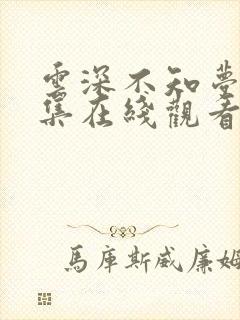 雲深不知夢
集在綫觀看
馬庫斯威廉姆